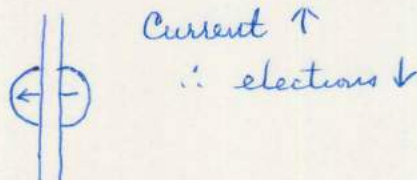 Current ↑
∴ electrons ↓